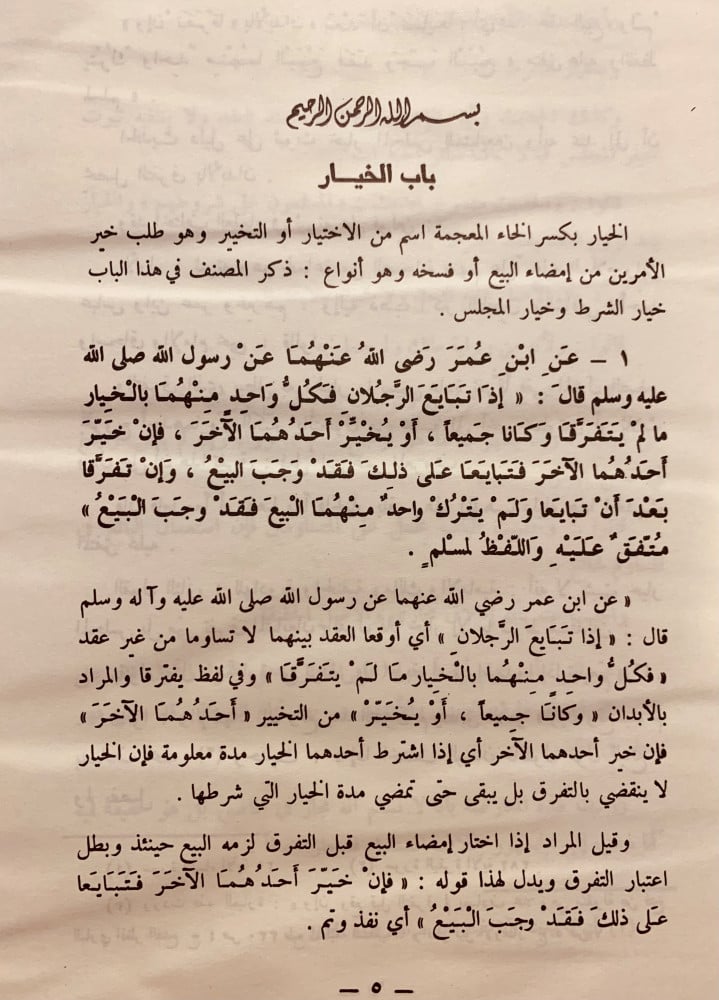 بسم الله الرحمن الرحيم
باب الخيـار
الخيار بكسر الخاء المعجمة اسم من الاختيار أو التخيير وهو طلب خير
الأمرين من إمضاء البيع أو فسخه وهو أنواع : ذكر المصنف في هذا الباب
خيار الشرط وخيار المجلس .
١ – عَنِ ابْنِ عُمَرَ رَضى اللهُ عَنْهُمَا عَنْ رسول الله صلى الله
عليه وسلم قالَ : « إذا تَبَايَعَ الرَّجُلانِ فَكُلُّ وَاحِدٍ مِنْهُمَا بالْخِيار
ما لمْ يَتَفَرَّقَا وَكَانا جَميعاً ، أَوْ يُخَيِّرُ أحَدُهُمَا الآخَرَ ، فإنْ خَيَّرَ
أحَدُهُما الآخَرَ فَتَبايَعَا عَلى ذلِكَ فَقَدْ وَجَبَ البيْعُ ، وَإنْ تَفَرَّقا
بَعْدَ أنْ تَبايَعا وَلَمْ يَتْرُكْ واحدٌ مِنْهُمَا الْبيعَ فَقَدْ وجَبَ الْبَيْعُ »
مُتّفَقٌ عَلَيْهِ وَاللّفْظُ لمسْلمٍ .
« عن ابن عمر رضي الله عنهما عن رسول الله صلى الله عليه وآله وسلم
قال : « إذا تَبَايعَ الرَّجلانِ » أي أوقعا العقد بينهما لا تساوما من غير عقد
« فكلُّ واحدٍ مِنْهُما بالْخِيار مَا لَمْ يتَفَرَّقَا » وفي لفظ يفترقا والمراد
بالأبدان « وكانَا جميعاً ، أَوْ يُخَيّرْ » من التخيير « أَحَدُهُمَا الآخَرَ »
فإن خير أحدهما الآخر أي إذا اشترط أحدهما الخيار مدة معلومة فإن الخيار
لا ينقضي بالتفرق بل يبقى حتى تمضي مدة الخيار التي شرطها .
وقيل المراد إذا اختار إمضاء البيع قبل التفرق لزمه البيع حينئذ وبطل
اعتبار التفرق ويدل لهذا قوله : « فإنْ خَيّرَ أحَدُهُمَا الآخَرَ فَتَبَايَعا
عَلى ذلكَ فَقَدْ وجَبَ الْبَيْعُ » أي نفذ وتم .
– ٥ –